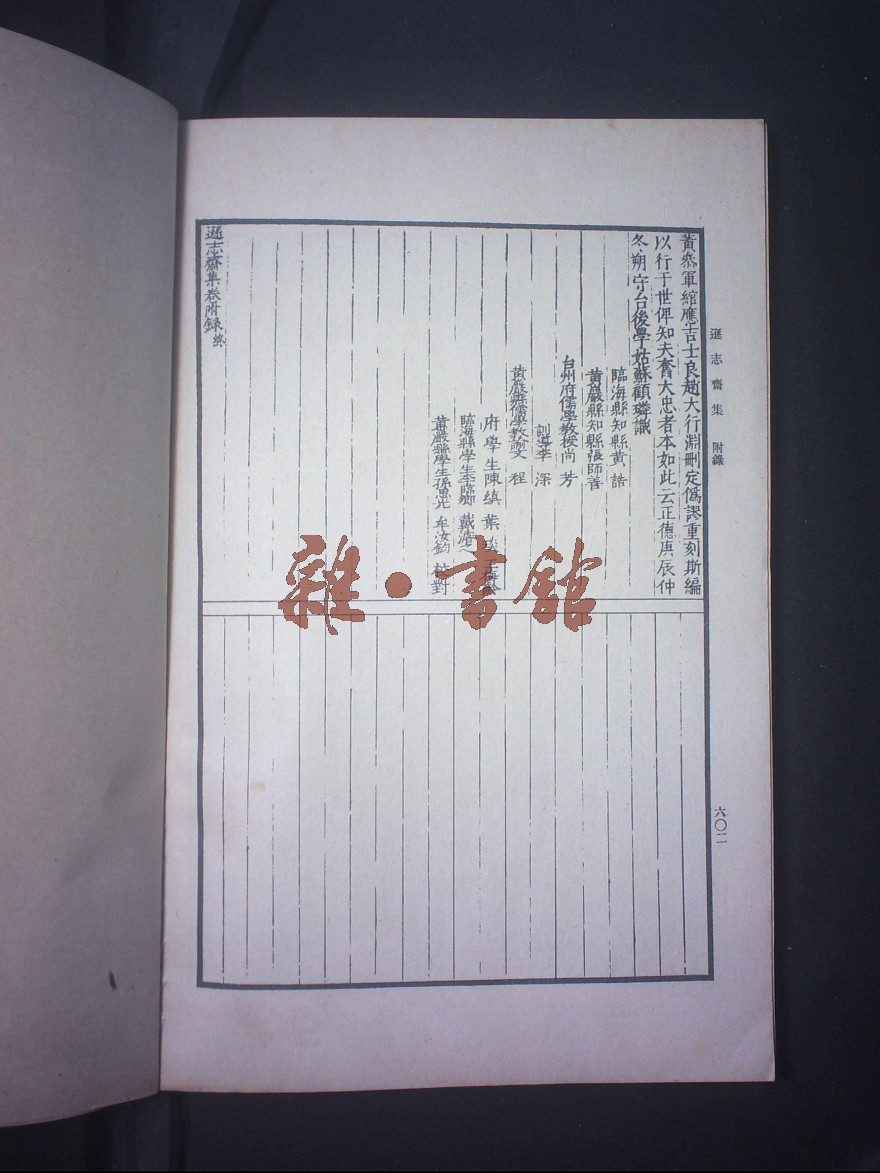 遜志齋集 附錄
黃叅軍綰應吉士良趙大行淵刪定僞謬重刻斯編
以行于世俾知夫奮大忠者本如此云正德庚辰仲
冬朔守台後學姑蘇顧璘識
臨海縣知縣黃 誥
黃巖縣知縣張師善
台州府儒學教授尚 芳
訓導李 深
黃巖縣儒學教諭文 程
府學生陳 縝 葉
臨海縣學生李 戴
黃巖縣學生孫 光 牟汝鈞 校對
遜志齋集卷附録 終
六〇二
雜·書館